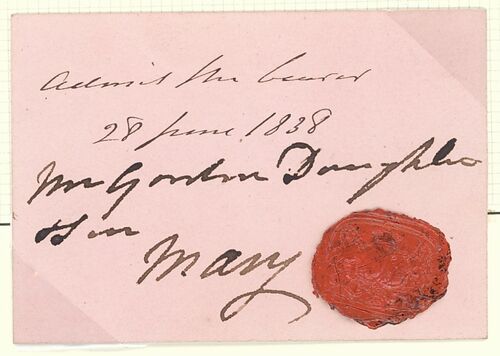 Admit the bearer
28 June 1838
Mrs Gordon Daughter
& Son
Mary